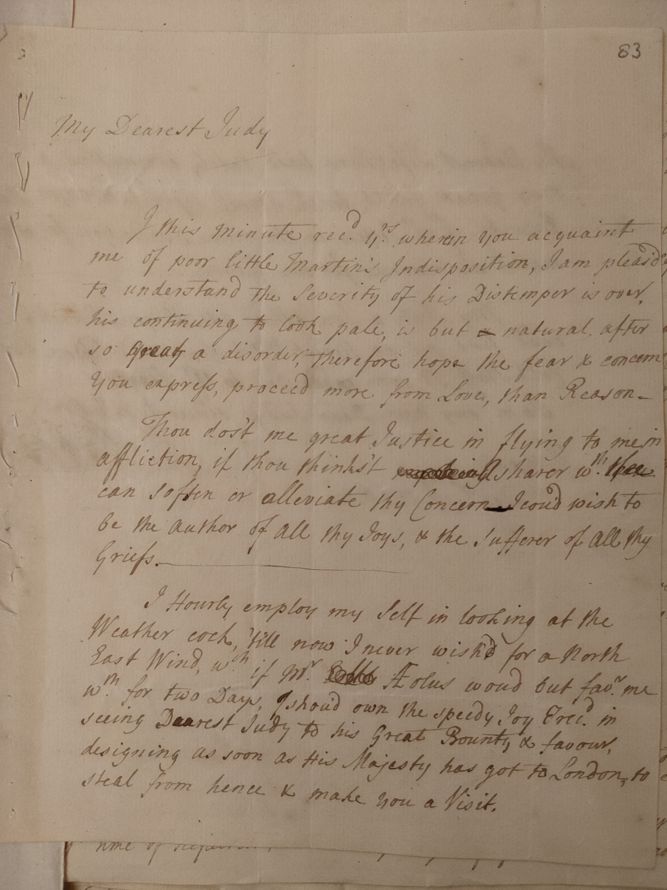 83
My Dearest Judy
I this minute rec.d y.rs wherein you acquaint
me of poor little Martin's Indisposition, I am pleas'd,
to understand the Severity of his Distemper is over,
his continuing to look pale, is but natural, after
so great a disorder, therefore hope the fear & concern
you express, proceed more from Love, than Reason–
Thou dos't me great Justice in flying to me in
affliction, if thou think'st a sharer wth thee
can soften or alleviate thy Concern–I cou'd wish to
be the author of all thy Joys, & the sufferer of all thy
Griefs.
I Hourly employ my Self in looking at the
Weather cock, 'till now I never wish'd for a North
East Wind, wth if Mr Æolus woud but favr me
wth for two Days, I shou'd own the speedy Joy in
seeing Dearest Judy to his Great Bounty & favour,
designing as soon as His Majesty has got to London, to
steal from hence & make you a Visit.
time of